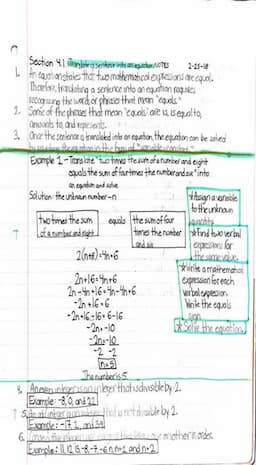 Section 4.1 Translate a sentence into an equation NOTES 2-25-18
1. An equation states that two mathematical expressions are equal.
Therefore, translating a sentence into an equation requires
recognizing the words or phrases that mean "equals."
2. Some of the phrases that mean "equals" are is, is equal to,
amounts to, and represents.
3. Once the sentence is translated into an equation, the equation can be solved
by the equation in the form of
Example 1 - Translate "two times the sum of a number and eight
equals the sum of four times the number and six" into
an equation and solve.
Solution: the unknown number - n
*Assign a variable
to the unknown
quantity
two times the sum equals the sum of four
of a number and eight times the number
and six
*Find two verbal
expressions for
the same value.
2(n+8) = 4n+6
*Write a mathematical
expression for each
verbal expression.
Write the equals
sign.
2n+16=4n+6
2n-4n+16=4n-4n+6
-2n+16=6
-2n+16-16=6-16
-2n=-10
*Solve the equation.
-2n=-10
-2 -2
n=5
The number is 5.
4. An even integer is an integer that is divisible by 2.
Example: -8, 0, and 22
5. integer that is not divisible by 2.
Example: -17, 1, and 39
6. another in order.
Example: 11, 12, 13, -8, -7, -6, n, n+1, and n+2